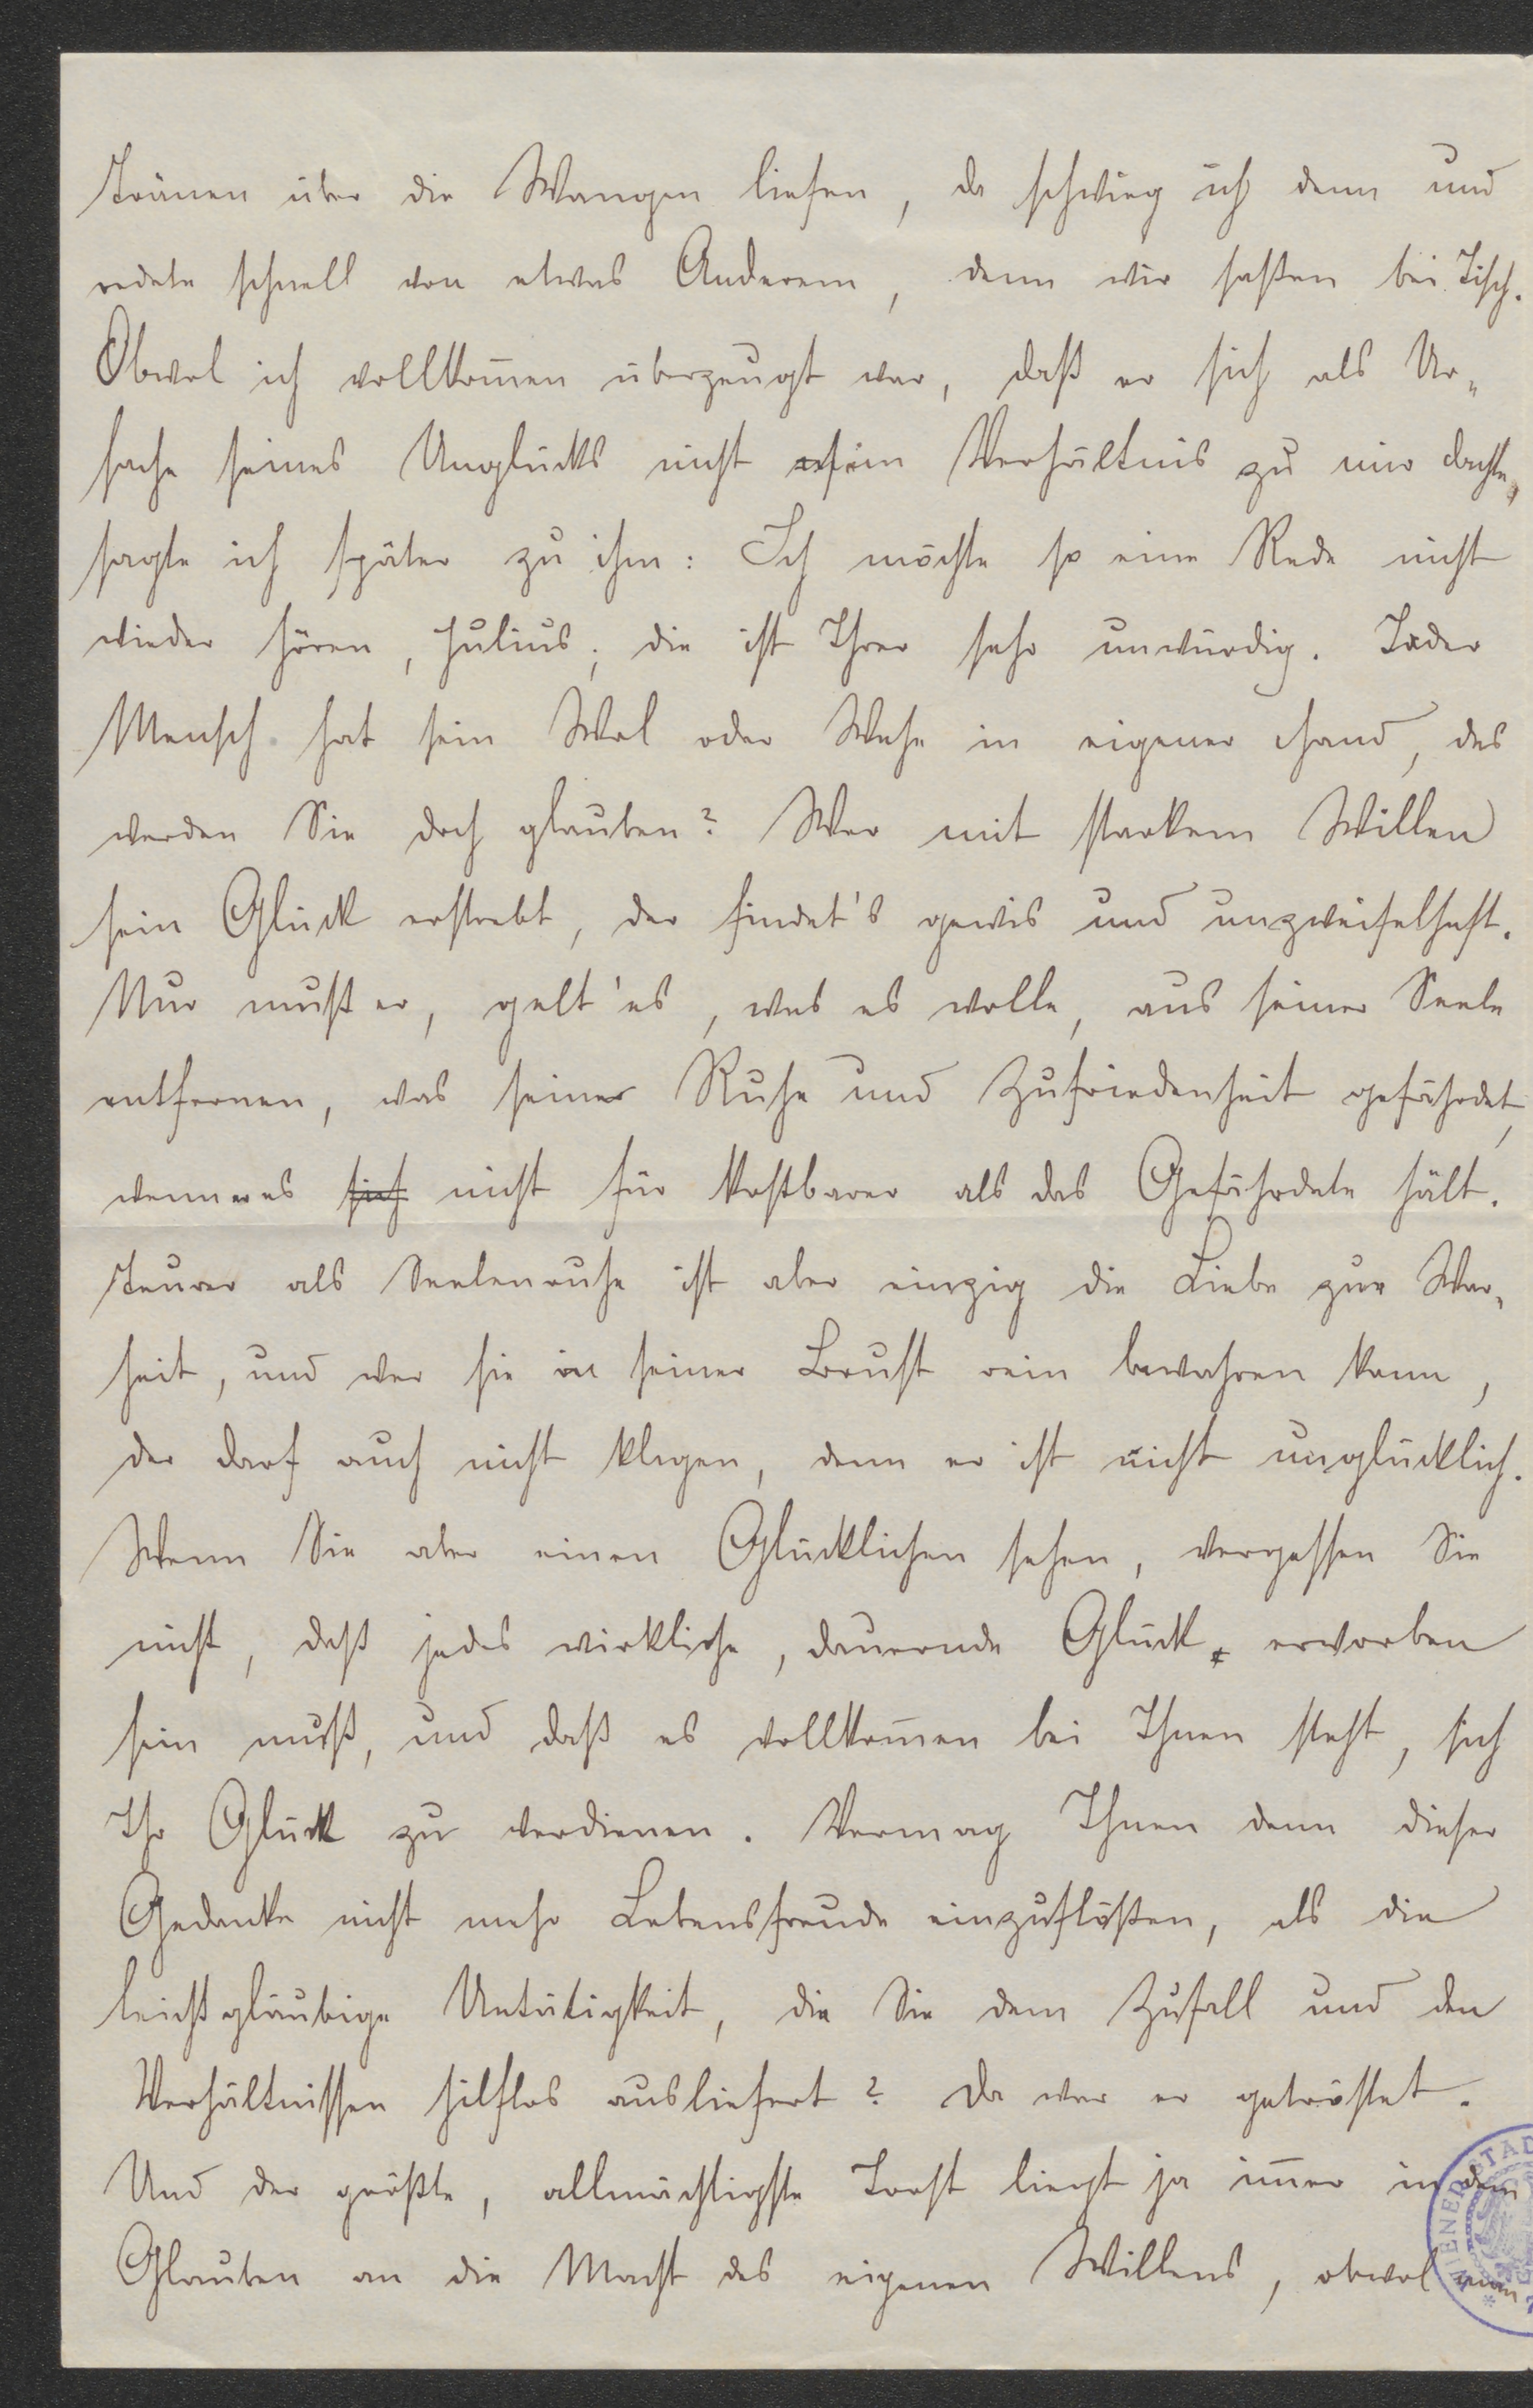 Tränen über die Wangen liefen, da schwieg ich denn und
redete schnell von etwas Anderem, denn wir saßen bei Tisch.
Obwol ich vollkom̄en überzeugt war, daß er sich als Ur-
sache seines Unglücks nicht sein Verhältnis zu mir dachte,
sagte ich später zu ihm: Ich möchte so eine Rede nicht
wieder hören, Julius; die ist Ihrer sehr unwürdig. Jeder
Mensch hat sein Wol oder Wehe in eigener Hand, das
werden Sie doch glauben? Wer mit starkem Willen
sein Glück erstrebt, der findet's gewis und unzweifelhaft.
Nur muß er, gelt' es, was es wolle, aus seiner Seele
entfernen, was seine Ruhe und Zufriedenheit gefährdet,
wenn er es sich nicht für kostbarer als das Gefährdete hält.
Teurer als Seelenruhe ist aber einzig die Liebe zur War-
heit, und wer sie in seiner Brust rein bewahren kann,
der darf auch nicht klagen, denn er ist nicht unglücklich.
Wenn Sie aber einen Glücklichen sehen, vergessen Sie
nicht, daß jedes wirkliche, dauernde Glück erworben
sein muß, und daß es vollkom̄en bei Ihnen steht, sich
Ihr Glück zu verdienen. Vermag Ihnen denn dieser
Gedanke nicht mehr Lebensfreude einzuflößen, als die
leichtgläubige Untätigkeit, die Sie dem Zufall und den
Verhältnissen hilflos ausliefert? Da war er getröstet.
Und der größte, allmächtigste Trost liegt ja im̄er in dem
Glauben an die Macht des eigenen Willens, obwol man
WIENER STAD